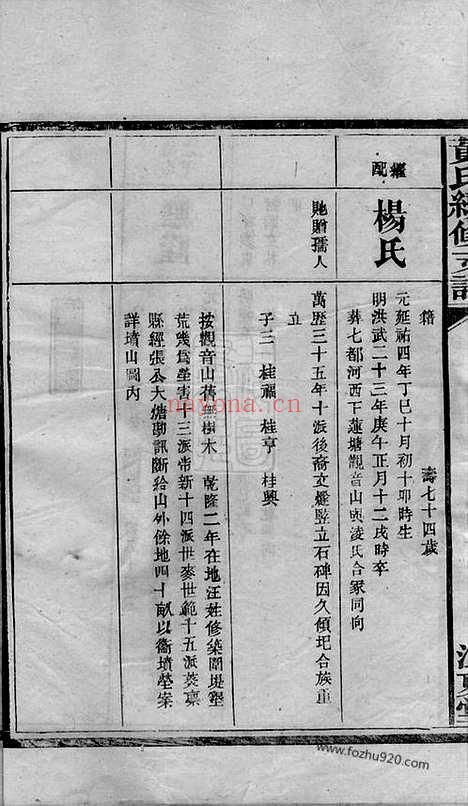 黃氏續修支譜
江夏堂
籍
壽七十四歲
繼配
楊氏
元延祐四年丁巳十月初十卯時生
明洪武二十三年庚午正月十二戌時卒
葬七都河西下蓮塘觀音山與淩氏合冢同向
馳贈孺人
萬歷三十五年十派後裔文燈竪立石碑因久傾圮合族重
立
子三 桂福 桂亨 桂興
按觀音山舊無樹木 乾隆二年在地汪姓修築圍堤壂
荒幾爲塋害十三派帝新十四派世麥世範十五派英禀
縣經張公大熖勘訊斷給山外餘地四十畝以衞墳塋案
詳墳山圖內
nayona.cn
www.fozhu920.com